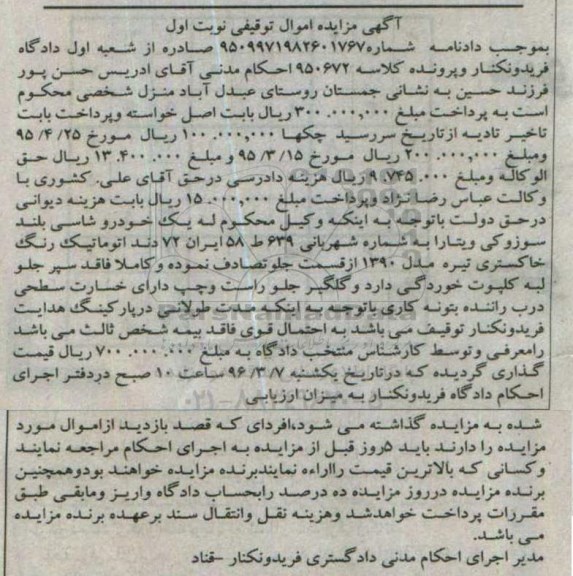 آگهی مزایده اموال توقیفی نوبت اول
بموجب دادنامه شماره۹۵۰۹۹۷۱۹۸۲۶۰۱۷۶۷ صادره از شعبه اول دادگاه
فریدونکنار وپرونده کلاسه ۹۵۰۶۷۲ احکام مدنی آقای ادریس حسن پور
فرزند حسین به نشانی جمستان روستای عبدل آباد منزل شخصی محکوم
است به پرداخت مبلغ ۳۰۰,۰۰۰,۰۰۰ ریال بابت اصل خواسته وپرداخت بابت
تاخیر تادیه ازتاریخ سررسید چکها ۱۰۰,۰۰۰,۰۰۰ ریال مورخ ۹۵/۴/۲۵
ومبلغ ۲۰۰,۰۰۰,۰۰۰ ریال مورخ ۹۵/۳/۱۵ و مبلغ ۱۳.۴۰۰.۰۰۰ ریال حق
الوکاله ومبلغ ۹.۷۴۵.۰۰۰ ریال هزینه دادرسی درحق آقای علی. کشوری با
وکالت عباس رضا نژاد وپرداخت مبلغ ۱۵,۰۰۰,۰۰۰ ریال بابت هزینه دیوانی
درحق دولت باتوجه به اینکه وکیل محکوم له یک خودرو شاسی بلند
سوزوکی ویتارا به شماره شهربانی ۶۳۹ ط ۵۸ ایران ۷۲ دند اتوماتیک رنگ
خاکستری تیره مدل ۱۳۹۰ ازقسمت جلو تصادف نموده و کاملا فاقد سپر جلو
لبه کلپوت خوردگی دارد و گلگیر جلو راست وچپ دارای خسارت سطحی
درب راننده بتونه کاری باتوجه به اینکه مدت طولانی درپارکینگ هدایت
فریدونکنار توقیف می باشد به احتمال قوی فاقد بیمه شخص ثالث می باشد
رامعرفی وتوسط کارشناس منتخب دادگاه به مبلغ ۷۰۰.۰۰۰.۰۰۰ ریال قیمت
گذاری گردیده که درتاریخ یکشنبه ۹۶/۳/۷ ساعت ۱۰ صبح دردفتر اجرای
احکام دادگاه فریدونکنار به میزان ارزیابی
شده به مزایده گذاشته می شود،افردای که قصد بازدید ازاموال مورد
مزایده را دارند باید ۵روز قبل از مزایده به اجرای احکام مراجعه نمایند
وکسانی که بالاترین قیمت رااراءه نمایندبرنده مزایده خواهند بودوهمچنین
برنده مزایده درروز مزایده ده درصد رابحساب دادگاه واریز ومابقی طبق
مقررات پرداخت خواهدشد وهزینه نقل وانتقال سند برعهده برنده مزایده
می باشد.
مدیر اجرای احکام مدنی دادگستری فریدونکنار -قناد